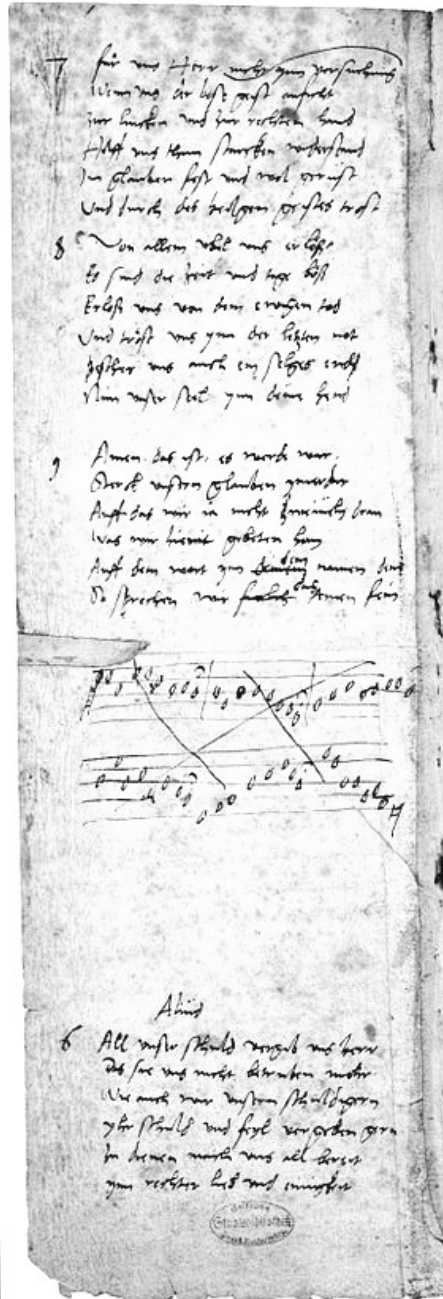 7 für uns Herr nicht ynn versuchung
Wenn uns der böse geist anficht
zur lincken und zur rechten hand
Hilff uns thun starcken widerstand
Im glauben fest und wol gerüst
Und durch des heilgen geistes trost
8 Von allem ubel uns erlöse
Es sind die zeit und tage bös
Erlös uns von dem ewigen tod
Und tröst uns ynn der letzten not
bescher uns auch ein seliges end
Nim unser seel ynn deine hend
9 Amen das ist, es werde war.
Sterck unsern glauben ymerdar
Auff das wir ia nicht zweiveln dran
Was wir hiemit gebeten han
Auff dein wort ynn dem namen dein
So sprechen wir das Amen fein
Aliud
6 All unser schuld vergib uns herr
Das sie uns nicht betruben mehr
Wie auch wir unsern schuldigern
yhr schuld und feyl vergeben gern
zu dienen mach uns all bereit
ynn rechter lieb und einigkeit
Staatsbibliothek